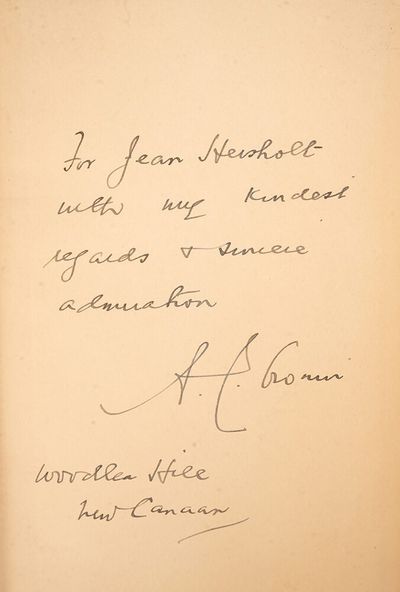 For Jean Hersholt
with my kindest
regards & sincere
admiration
A. J. Cronin
Woodlea Hill
New Canaan